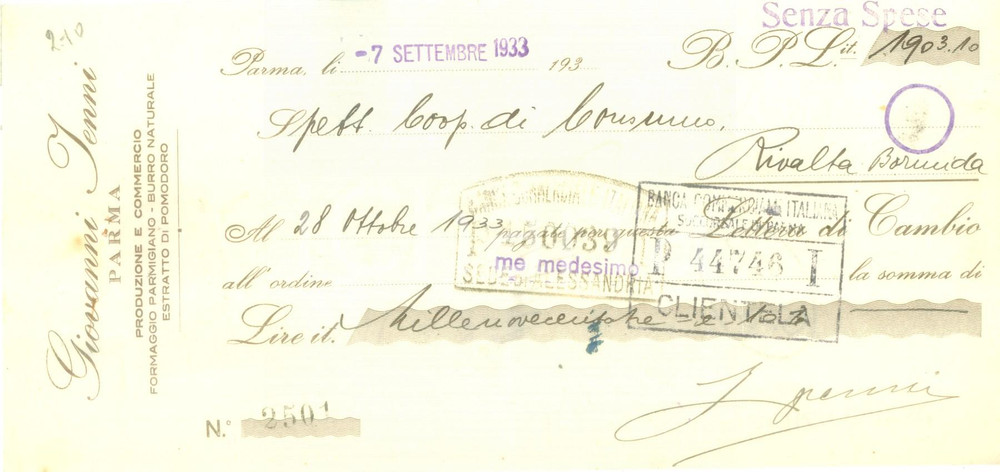 2-10
Giovanni Jenni
PARMA
PRODUZIONE E COMMERCIO
FORMAGGIO PARMIGIANO - BURRO NATURALE
ESTRATTO DI POMODORO
Senza Spese
Parma, li -7 SETTEMBRE 1933 193
B. P. Lit. 1903.10
Spett. Coop. di Consumo,
Rivalta Bormida
Al 28 Ottobre 1933 pagate per questa Lettera di Cambio
all'ordine me medesimo la somma di
SEDE DI ALESSANDRIA
BANCA COMMERCIALE ITALIANA
SUCCURSALE DI PARMA
P 44746 I
CLIENTELA
Lire it. Millenovecentotre e
N.° 2501